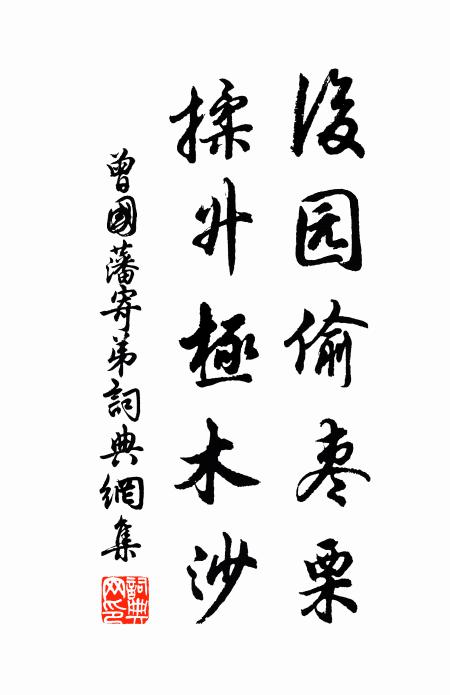 後园偷枣栗
揉升極木沙
曾國藩寄弟詞典網集
詞典网印